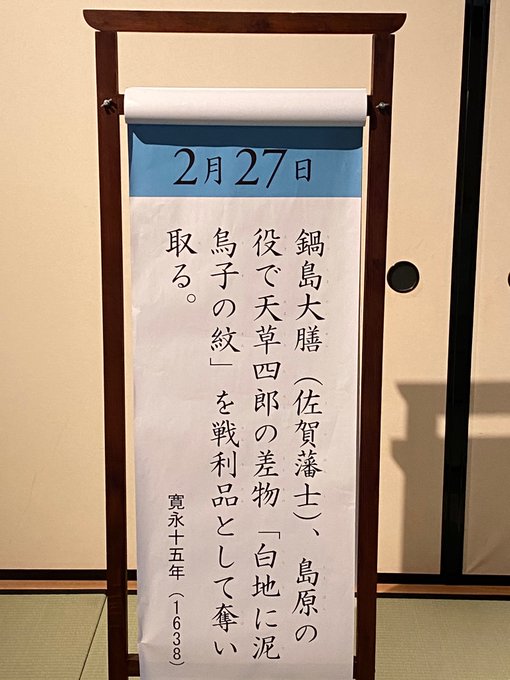 2月27日
鍋島大膳（佐賀藩士）、島原の
役で天草四郎の差物「白地に泥
烏子の紋」を戦利品として奪い
取る。
寛永十五年（1638）